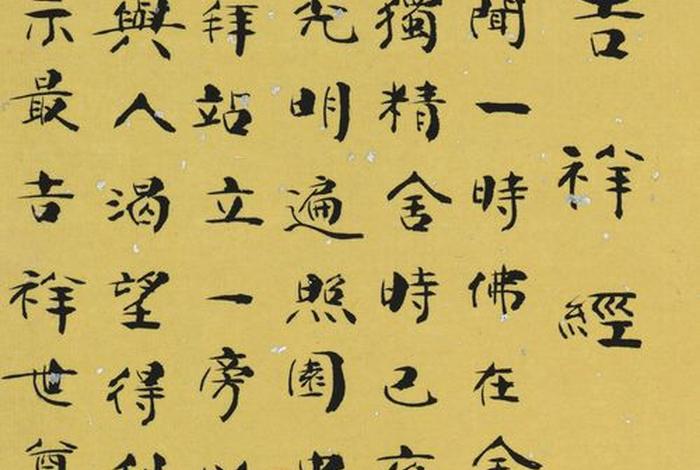 吉祥經
聞一時佛在舍
獨精舍時已夜
光明遍照園
拜站立一旁以
與人渴望得利
示最吉祥世尊